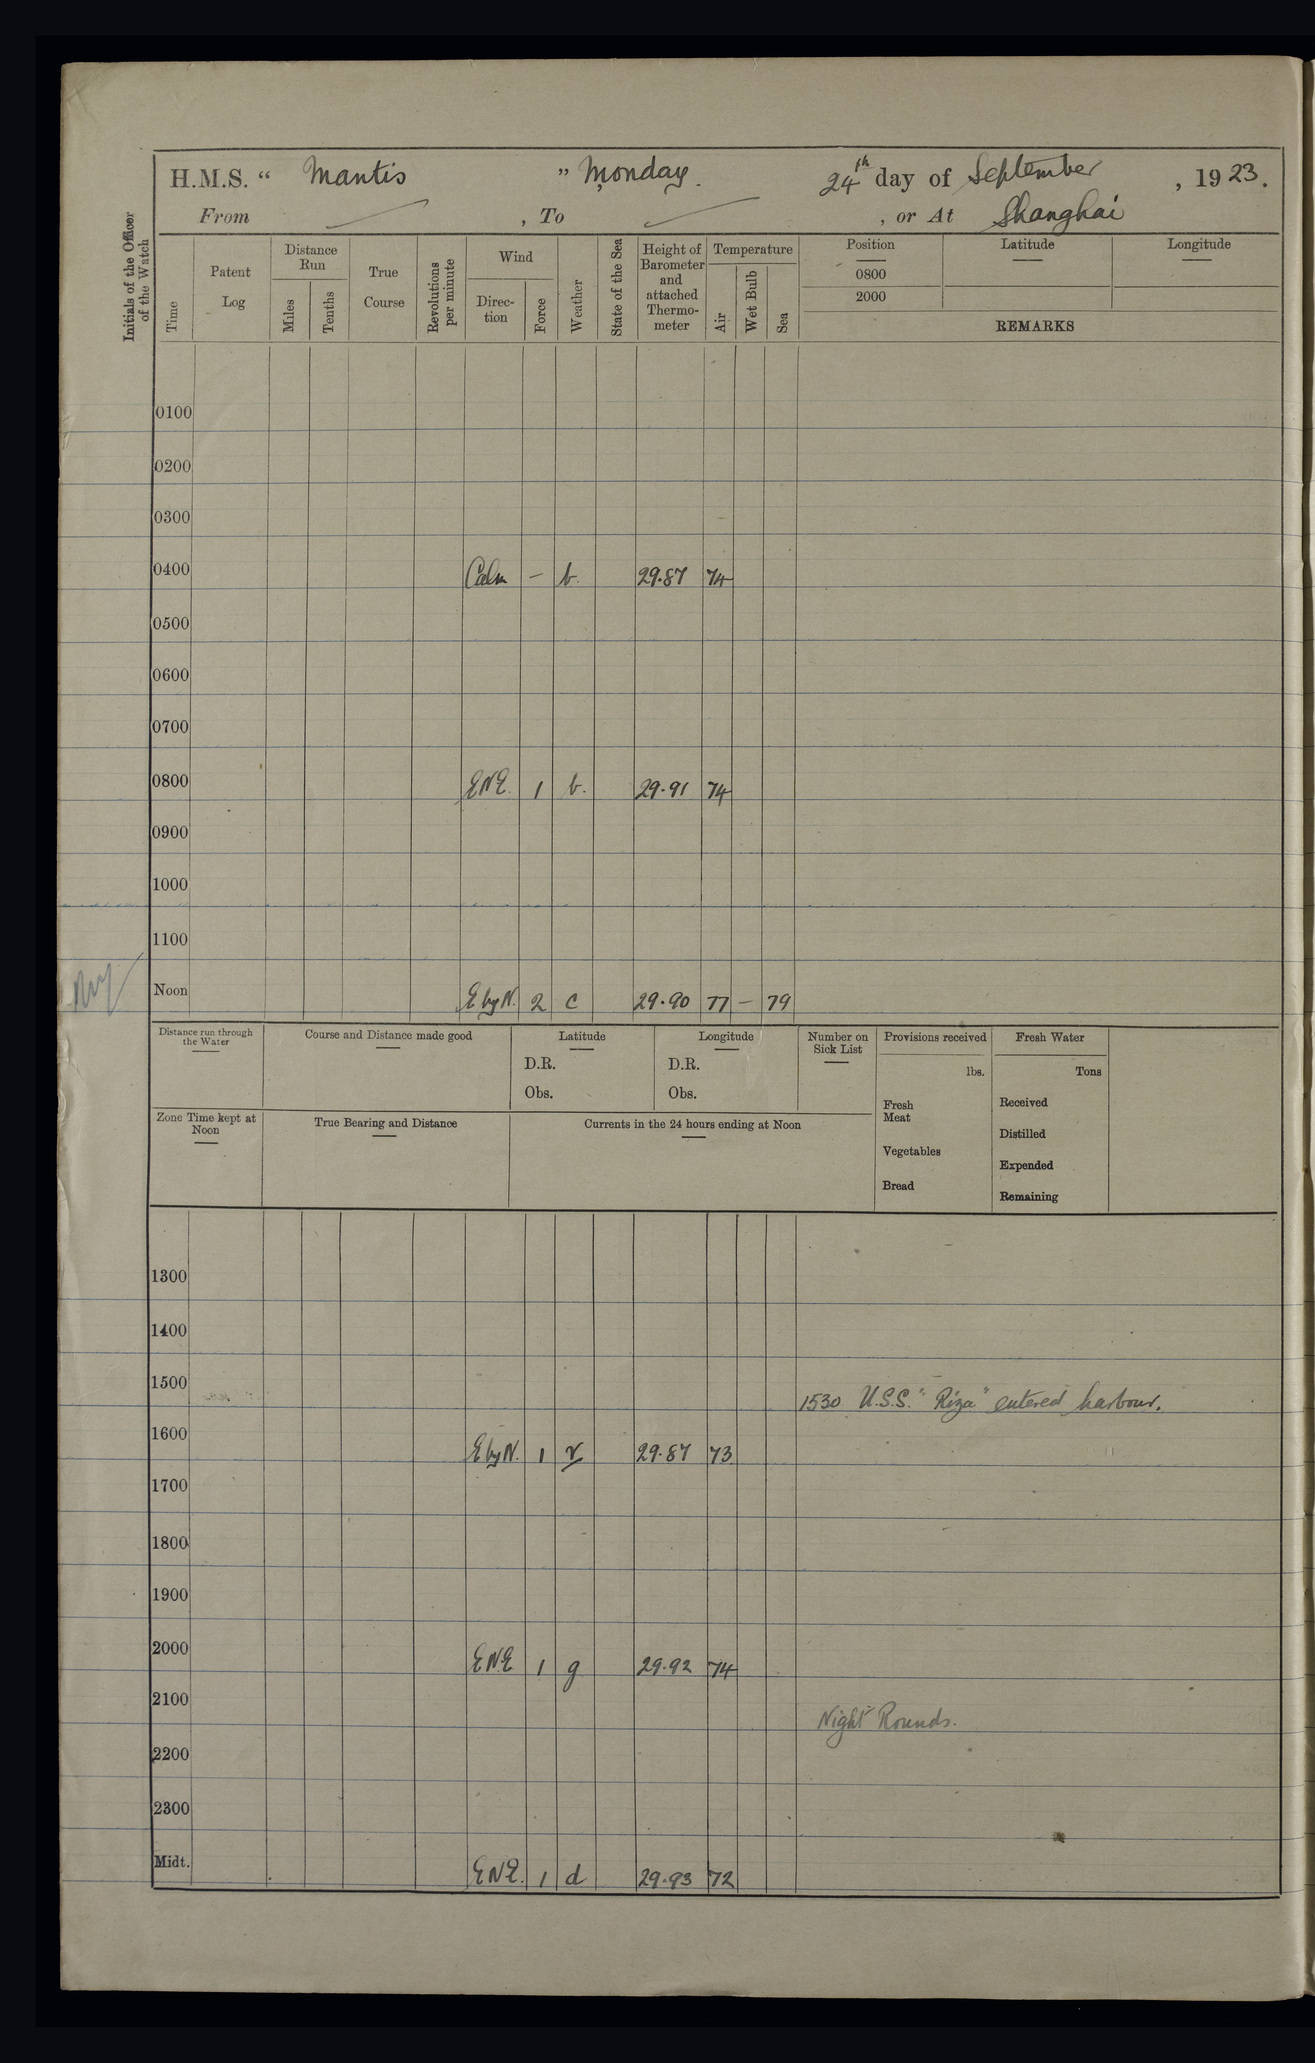 H.M.S. “ Mantis ” Monday. 24th day of September , 1923.
From , To , or At Shanghai
Initials of the Officer of the Watch
Time
Patent Log
Distance Run
Miles
Tenths
True Course
Revolutions per minute
Wind
Direc-tion
Force
Weather
State of the Sea
Height of Barometer and attached Thermo-meter
Temperature
Air
Wet Bulb
Sea
Position Latitude Longitude
0800
2000
REMARKS
0100
0200
0300
0400 Calm - b. 29.87 74
0500
0600
0700
0800 ENE. 1 b. 29.91 74
0900
1000
1100
Noon E by N. 2 c 29.90 77 - 79
Distance run through the Water
Course and Distance made good
Latitude
D.R.
Obs.
Longitude
D.R.
Obs.
Number on Sick List
Provisions received
lbs.
Fresh Meat
Vegetables
Bread
Fresh Water
Tons
Received
Distilled
Expended
Remaining
Zone Time kept at Noon
True Bearing and Distance
Currents in the 24 hours ending at Noon
1300
1400
1500
1530 U.S.S. "Riza" entered harbour.
1600 E by N. 1 r 29.87 73
1700
1800
1900
2000 ENE 1 g 29.92 74
2100
Night Rounds.
2200
2300
Midt. ENE. 1 d 29.93 72